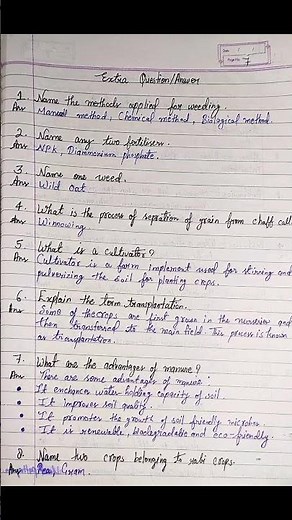 Extra Question/Answer
1. Name the methods applied for weeding.
Ans Manual method, Chemical method, Biological method.
2. Name any two fertilisers.
Ans NPK, Diammonium phosphate.
3. Name one weed.
Ans Wild Oat.
4. What is the process of sepration of grain from chaff call
Ans Winnowing.
5. What is a cultivator?
Ans Cultivator is a farm implement used for stirring and
pulverizing the soil for planting crops.
6. Explain the term transplantation.
Ans Some of the crops are first grown in the nurseries and
then transferred to the main field. This process is known
as transplantation.
7. What are the advantages of manure?
Ans There are some advantages of manure
• It enchances water holding capacity of soil
• It improves soil quality.
• It promotes the growth of soil friendly microbes
• It is renewable, biodegradable and eco-friendly.
8. Name two crops belonging to rabi crops.
Pea, Gram.